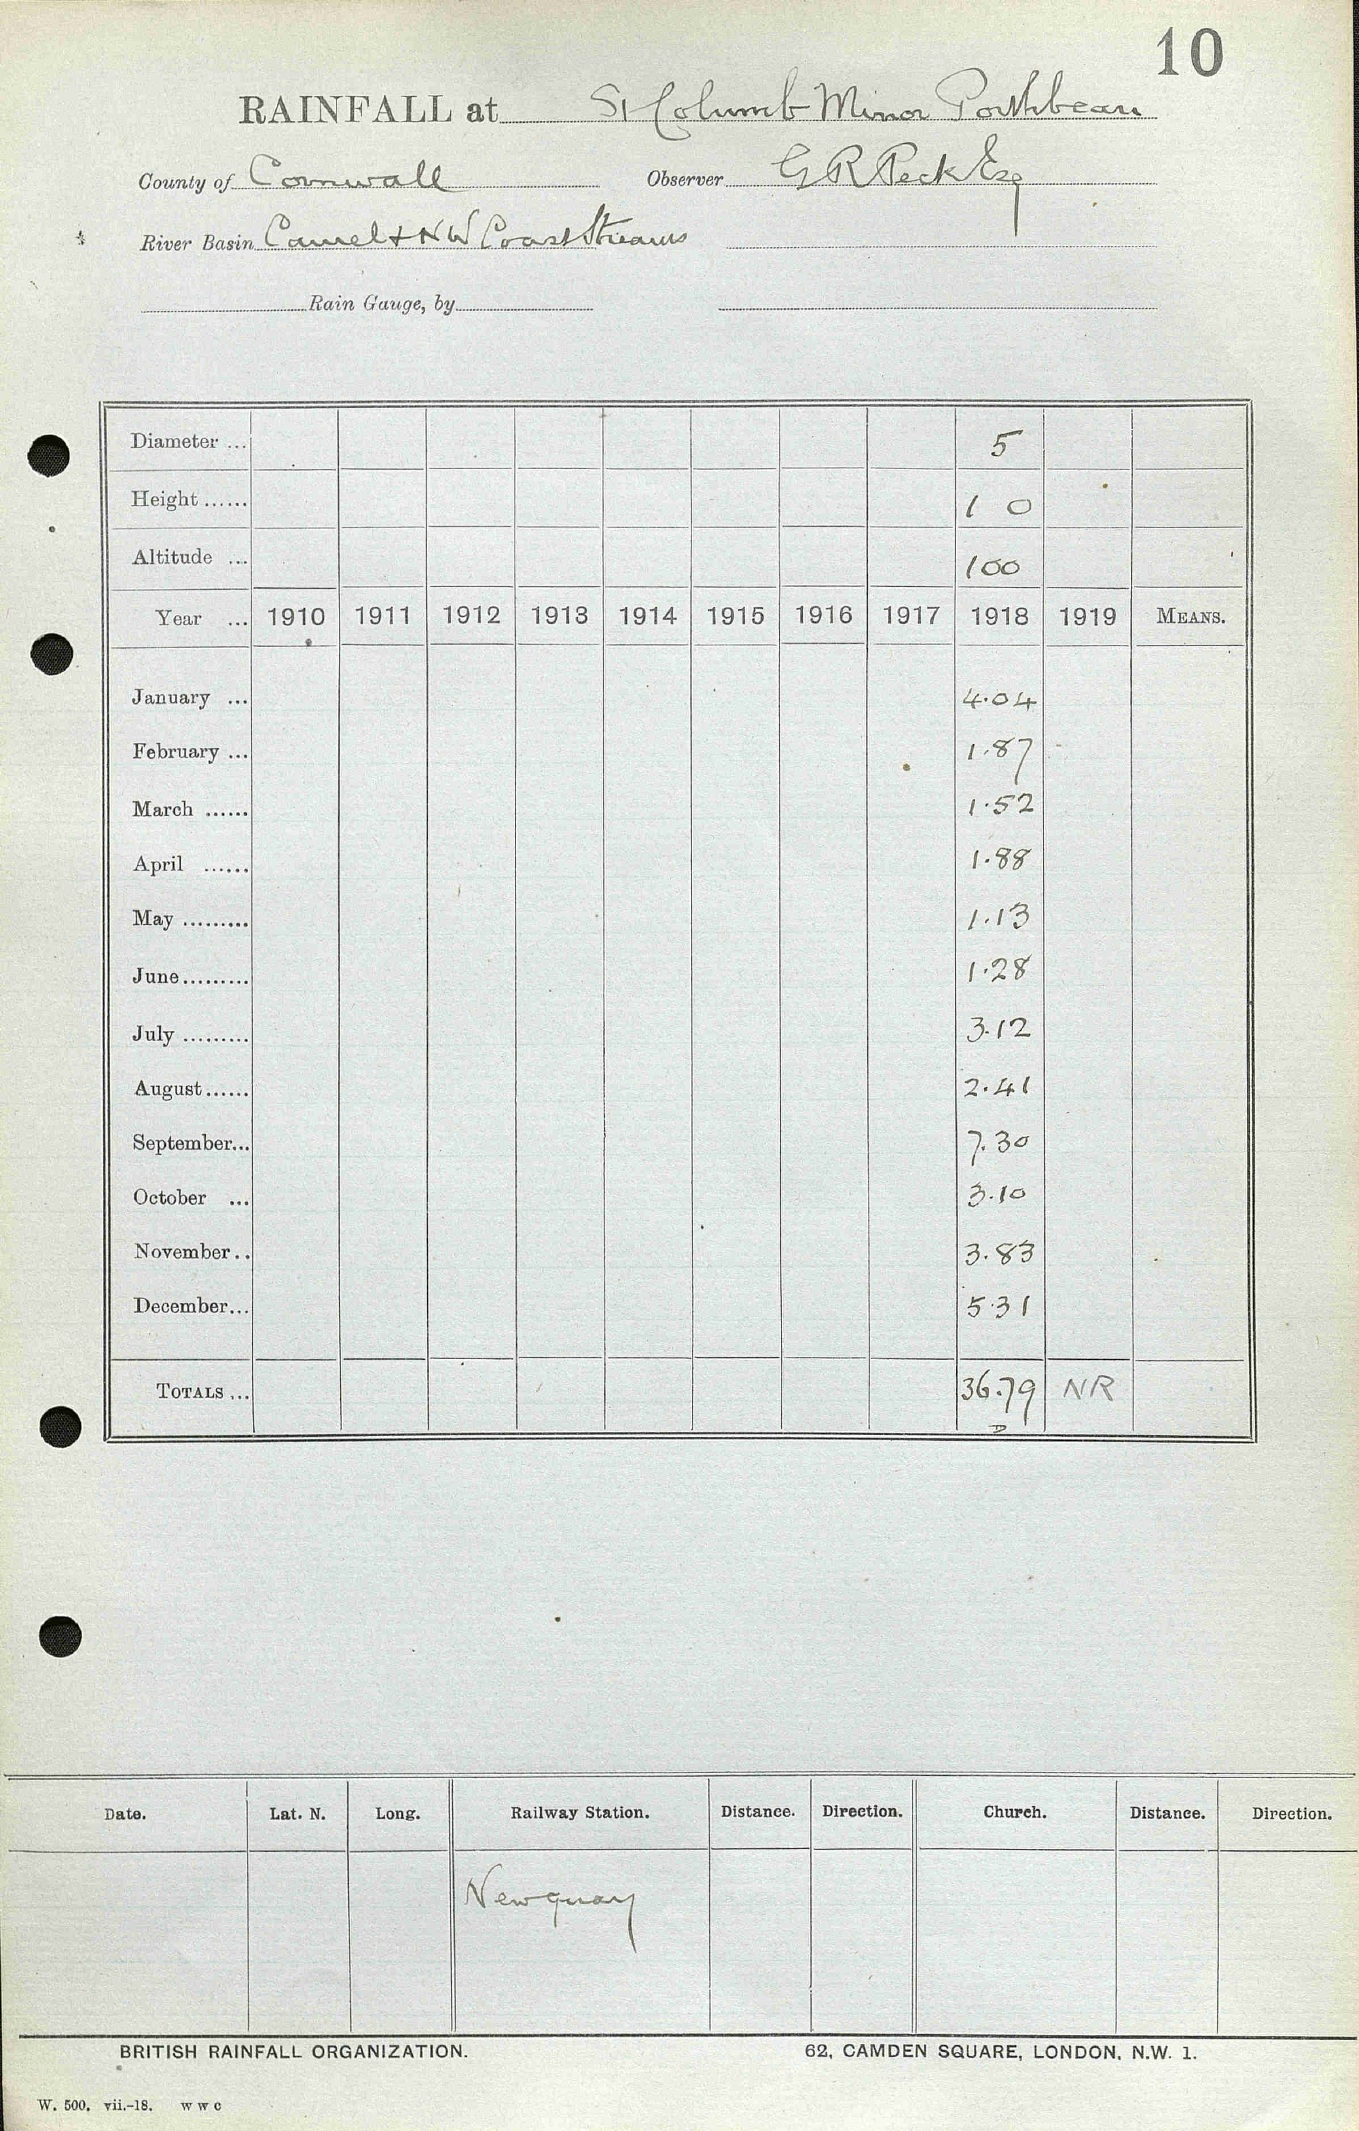 10
RAINFALL at St Columb Minor Porthbean
County of Cornwall Observer G R Peck Esq
River Basin Camel & NW Coast Streams
Rain Gauge, by
Diameter ... 5
Height ...... 1 0
Altitude ... 100
Year ... 1910 1911 1912 1913 1914 1915 1916 1917 1918 1919 MEANS.
January ... 4.04
February ... 1.87
March ...... 1.52
April ...... 1.88
May ......... 1.13
June ......... 1.28
July ......... 3.12
August ...... 2.41
September... 7.30
October ... 3.10
November.. 3.83
December... 5.31
TOTALS ... 36.79 NR
D
Date. Lat. N. Long. Railway Station. Distance. Direction. Church. Distance. Direction.
Newquay
BRITISH RAINFALL ORGANIZATION. 62, CAMDEN SQUARE, LONDON, N.W. 1.
W. 500. vii.-18. w w c